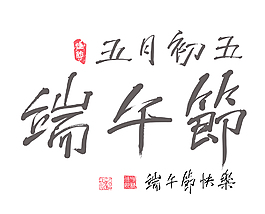 五月初五
端午節
端午節快樂